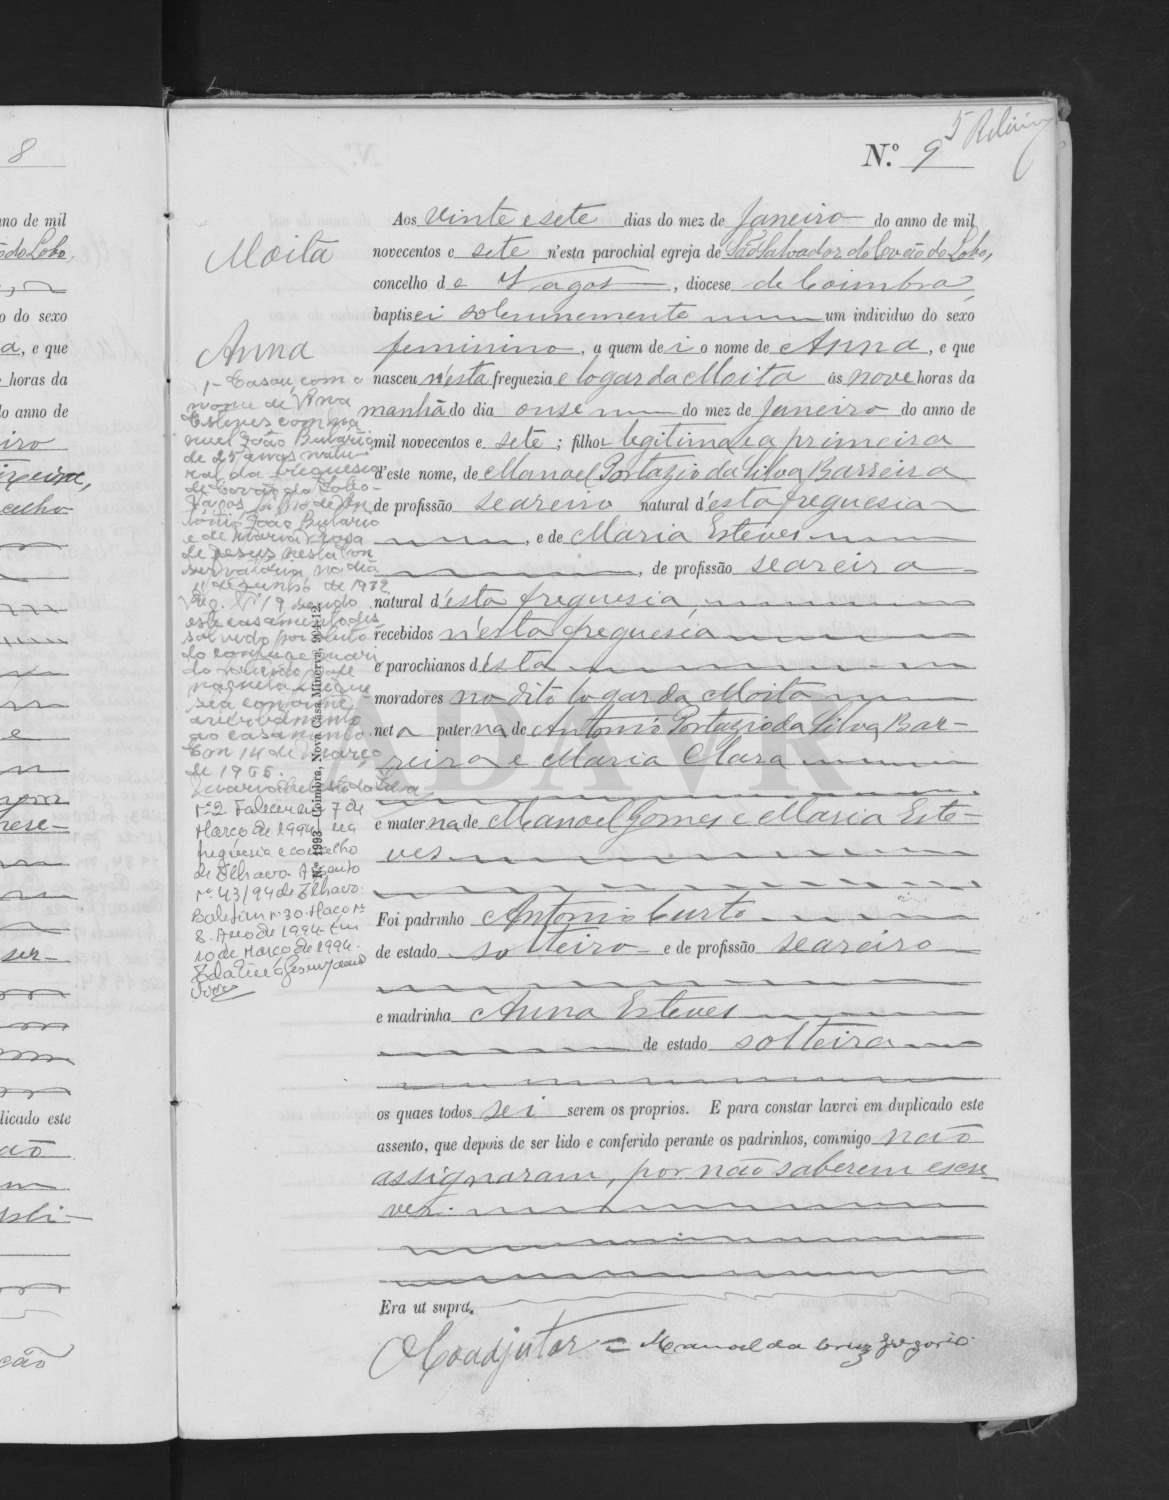 8
nno de mil
ãodoLobo,
o do sexo
a, e que
horas da
lo anno de
iro
licado este
ão
N.º 9
5 Ribeiro
Moita
Anna
1- Casou com o
nome de Ana
Esteves com Ma
nuel João Bulário
de 25 anos natu-
ral da freguesia
de Covão do Lobo-
Vagos, filho de An
tónio João Bulario
e de Maria Rosa
de Jesus nesta Con
servatória no dia
11 de Junho de 1932
Reg. Nº 19 sendo
este casamento dis
solvido por óbito
do conjuge mari
do
naquela fregue
sia conforme
averbamento
ao casamento.
Em 14 de Março
de 1966.
Nº2 Faleceu em 7 de
Março de 1994 na
freguesia e concelho
de Ílhavo. Assento
nº 43/94 de Ílhavo.
Boletim nº 30. Maço nº
8. Ano de 1994. Em
10 de Março de 1994.
Nº 1993—Coimbra, Nova Casa Minerva, 904-12
Aos vinte e sete dias do mez de Janeiro do anno de mil
novecentos e sete n'esta parochial egreja de São Salvador do Covão do Lobo,
concelho de Vagos, diocese de Coimbra,
baptisei solemnemente um individuo do sexo
feminino, a quem dei o nome de Anna, e que
nasceu n'esta freguezia e logar da Moita ás nove horas da
manhã do dia onse do mez de Janeiro do anno de
mil novecentos e sete; filha legitima e a primeira
d'este nome, de Manoel Portazio da Silva Barreira
de profissão seareiro natural d'esta freguesia
, e de Maria Esteves
, de profissão seareira
natural d'esta freguesia,
recebidos n'esta freguesia
e parochianos d'esta
moradores no dito logar da Moita
neta paterna de Antonio Portazio da Silva Bar-
reira e Maria Clara
e materna de Manoel Gomes e Maria Este-
ves
Foi padrinho Antonio Curto
de estado solteiro e de profissão seareiro
e madrinha Anna Esteves
de estado solteira
os quaes todos sei serem os proprios. E para constar lavrei em duplicado este
assento, que depois de ser lido e conferido perante os padrinhos, commigo não
assignaram, por não saberem escre-
ver.
Era ut supra.
O Coadjutor = Manoel da Cruz Gregorio.
ADAVR